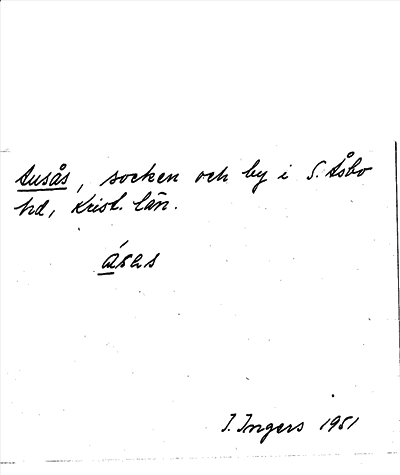 Ausås, socken och by i S. Åsbo
hd, Krist. län.
ásas
I. Ingers 1951